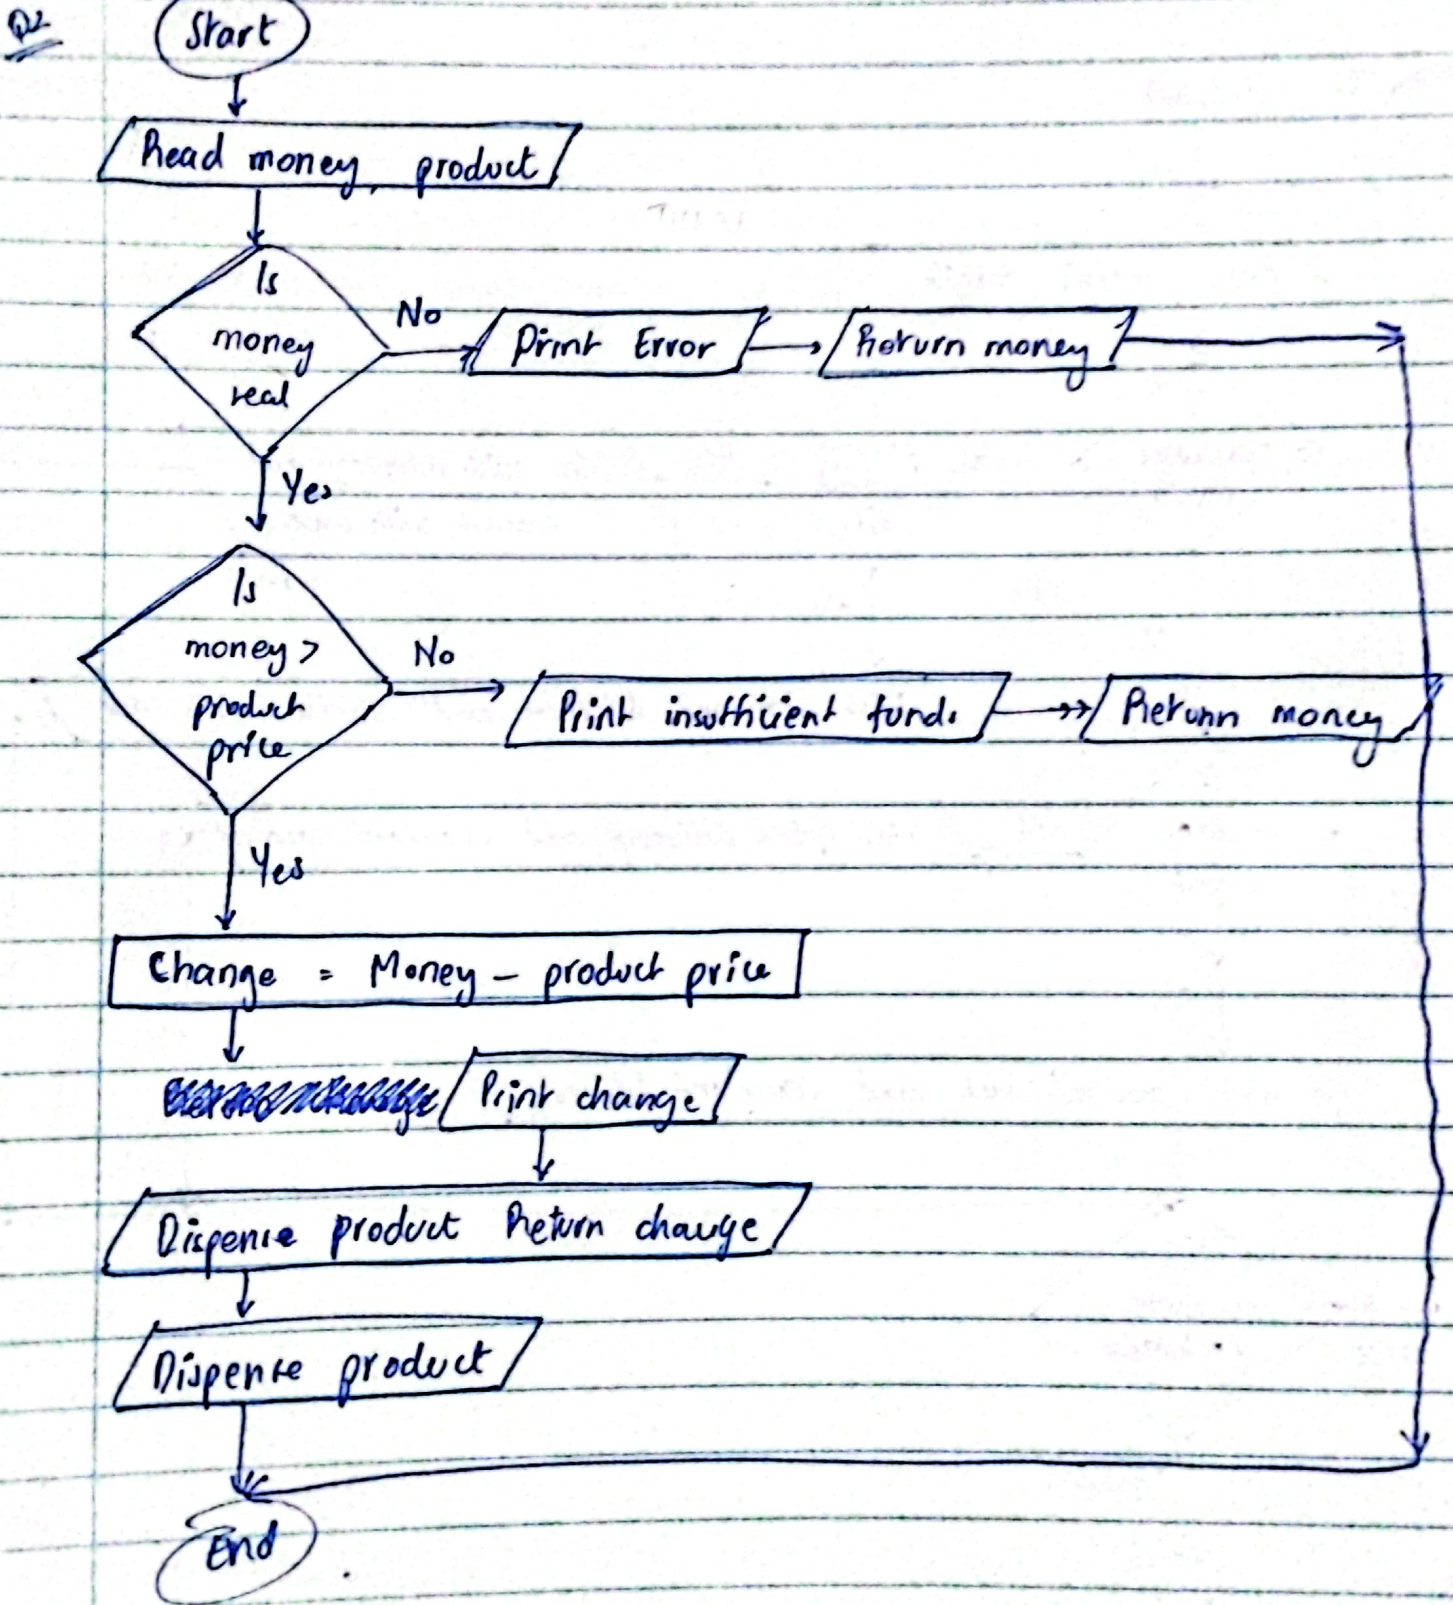 Q2
Start
Read money, product
Is
money
real
No
Print Error
Return money
Yes
Is
money >
product
price
No
Print insufficient funds
Return money
Yes
Change = Money - product price
Print change
Dispense product Return change
Dispense product
End